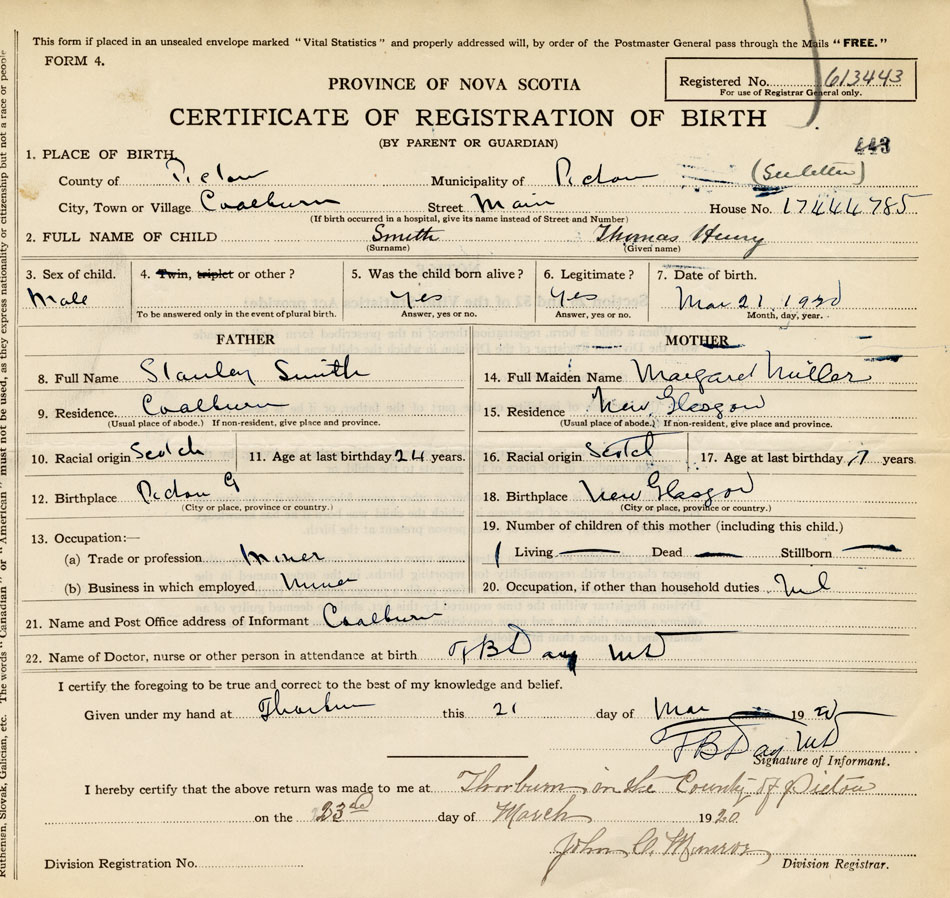 This form if placed in an unsealed envelope marked "Vital Statistics" and properly addressed will, by order of the Postmaster General pass through the Mails "FREE."
FORM 4.
Registered No. 613443
For use of Registrar General only.
PROVINCE OF NOVA SCOTIA
CERTIFICATE OF REGISTRATION OF BIRTH
(BY PARENT OR GUARDIAN)
443
1. PLACE OF BIRTH
County of Pictou Municipality of Pictou (See letter)
City, Town or Village Coalburn Street Main House No. 17444785
(If birth occurred in a hospital, give its name instead of Street and Number)
2. FULL NAME OF CHILD Smith Thomas Henry
(Surname) (Given name)
3. Sex of child. 4. Twin, triplet or other? 5. Was the child born alive? 6. Legitimate? 7. Date of birth.
Male Yes Yes Mar 21 1920
To be answered only in the event of plural birth. Answer, yes or no. Answer, yes or no. Month, day, year.
FATHER MOTHER
8. Full Name Stanley Smith 14. Full Maiden Name Margaret Miller
9. Residence. Coalburn 15. Residence New Glasgow
(Usual place of abode.) If non-resident, give place and province. (Usual place of abode.) If non-resident, give place and province.
10. Racial origin Scotch 11. Age at last birthday 24 years. 16. Racial origin Scotch 17. Age at last birthday 17 years
12. Birthplace Pictou 18. Birthplace New Glasgow
(City or place, province or country.) (City or place, province or country.)
13. Occupation:— 19. Number of children of this mother (including this child.)
(a) Trade or profession Miner 1 Living Dead Stillborn
(b) Business in which employed Miner 20. Occupation, if other than household duties Nil
21. Name and Post Office address of Informant Coalburn
22. Name of Doctor, nurse or other person in attendance at birth Day MD
I certify the foregoing to be true and correct to the best of my knowledge and belief.
Given under my hand at Thorburn this 21 day of Mar 1920
Day MD
Signature of Informant.
I hereby certify that the above return was made to me at Thorburn in the County of Pictou
on the 23rd day of March 1920
John Munroe
Division Registration No. Division Registrar.
Ruthenian, Slovak, Galician, etc. The words "Canadian" or "American" must not be used, as they express nationality or citizenship but not a race or people